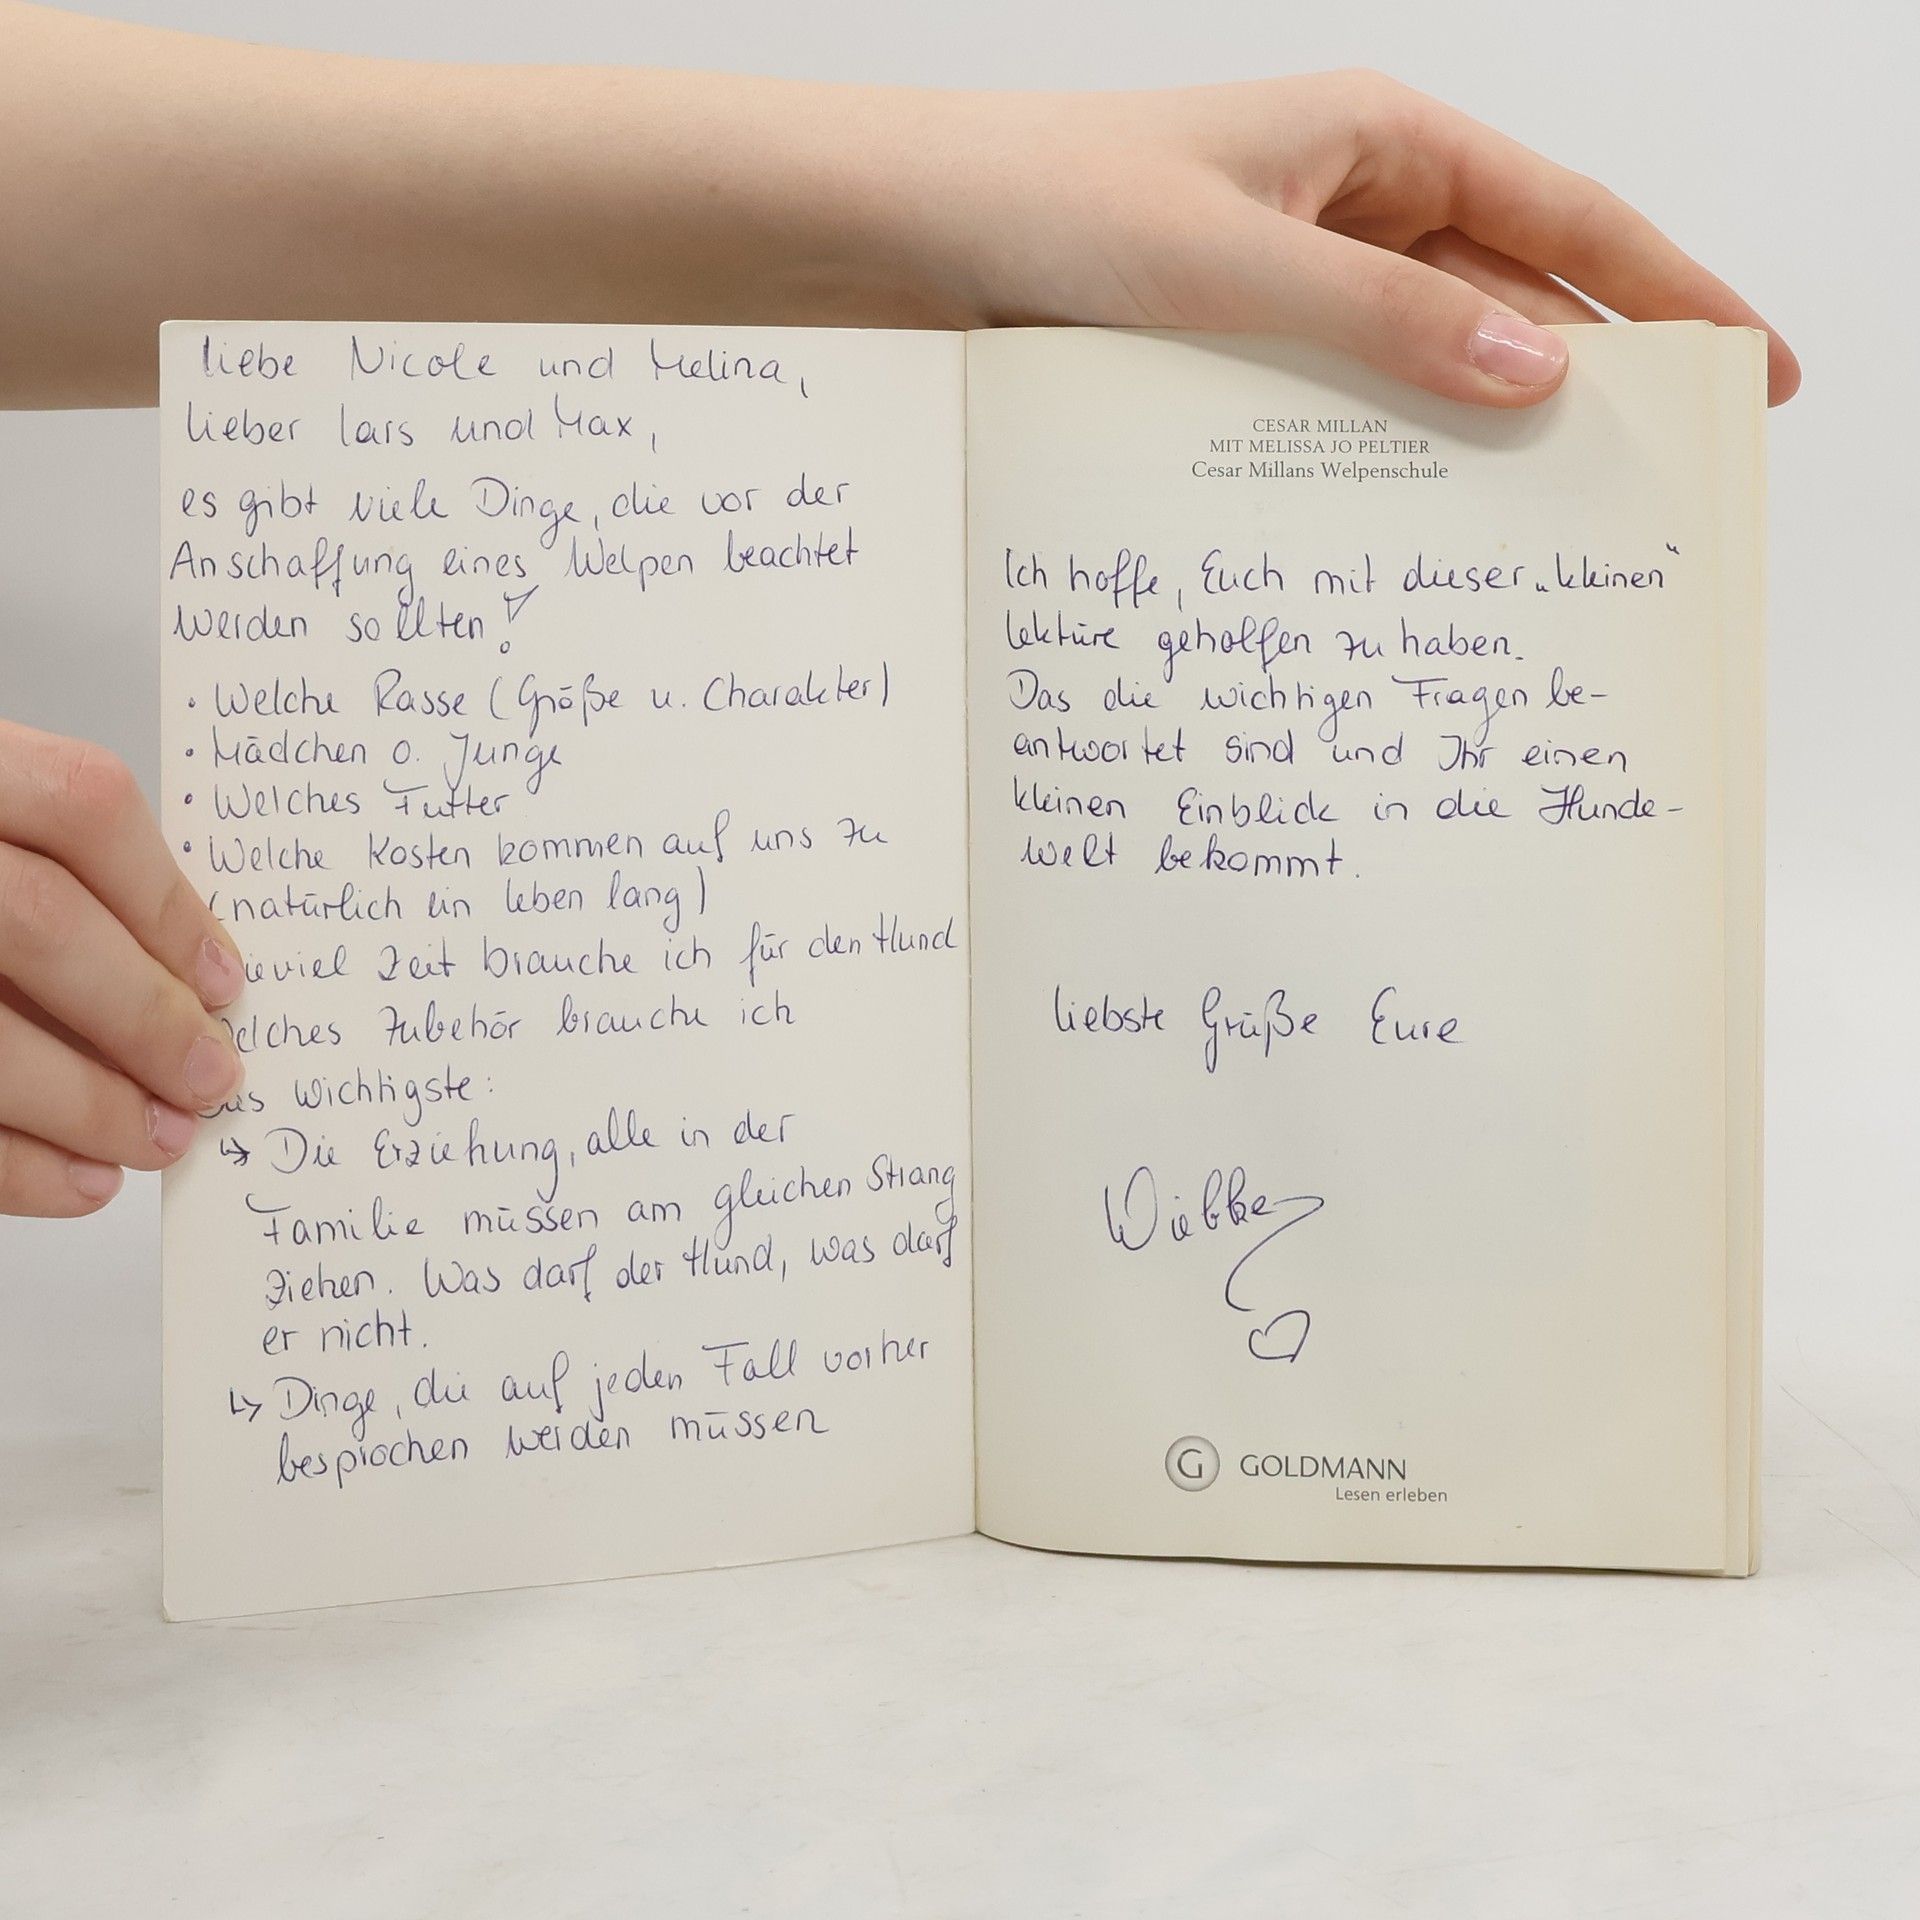 liebe Nicole und Melina,
lieber Lars und Max,
es gibt viele Dinge, die vor der
Anschaffung eines Welpen beachtet
werden sollten!
• Welche Rasse (Größe u. Charakter)
• Mädchen o. Junge
• Welches Futter
• Welche Kosten kommen auf uns zu
(natürlich ein leben lang)
ieviel Zeit brauche ich für den Hund
elches Zubehör brauche ich
as wichtigste:
↳ Die Erziehung, alle in der
Familie müssen am gleichen Strang
ziehen. Was darf der Hund, was darf
er nicht.
↳ Dinge, die auf jeden Fall vorher
besprochen werden müssen
CESAR MILLAN
MIT MELISSA JO PELTIER
Cesar Millans Welpenschule
Ich hoffe, Euch mit dieser „kleinen“
lektüre geholfen zu haben.
Das die wichtigen Fragen be-
antwortet sind und Ihr einen
kleinen Einblick in die Hunde-
welt bekommt.
liebste Grüße Eure
Wiebke
G GOLDMANN
Lesen erleben